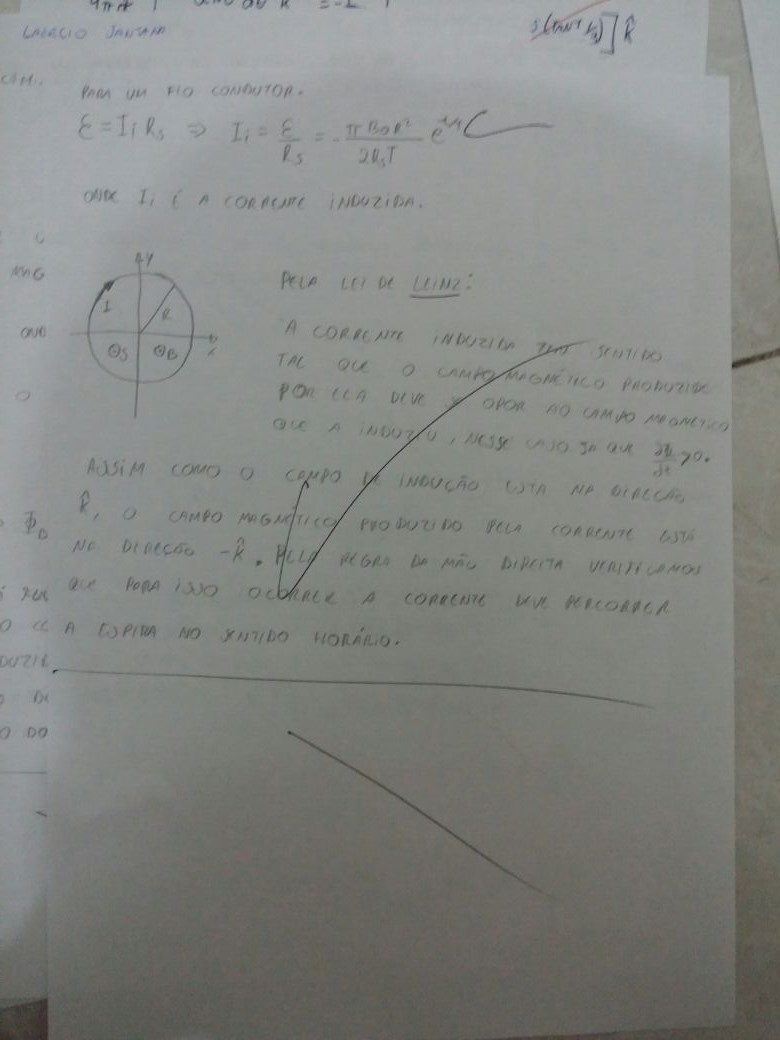 PARA UM FIO CONDUTOR.
Ɛ = Ii Rs ⇒ Ii = Ɛ/Rs = - πB0R²/2RsT e
ONDE Ii É A CORRENTE INDUZIDA.
y
I R
⊙S ⊙B
x
PELA LEI DE LEINZ:
A CORRENTE INDUZIDA TEM SENTIDO
TAL QUE O CAMPO MAGNÉTICO PRODUZIDO
POR ELA DEVE SE OPOR AO CAMPO MAGNÉTICO
QUE A INDUZIU, NESSE CASO JA QUE >0.
ASSIM COMO O CAMPO DE INDUÇÃO ESTA NA DIREÇÃO
k̂, O CAMPO MAGNÉTICO PRODUZIDO PELA CORRENTE ESTÁ
NA DIREÇÃO -k̂. PELA REGRA DA MÃO DIREITA VERIFICAMOS
QUE PARA ISSO OCORRER A CORRENTE DEVE PERCORRER
A ESPIRA NO SENTIDO HORÁRIO.